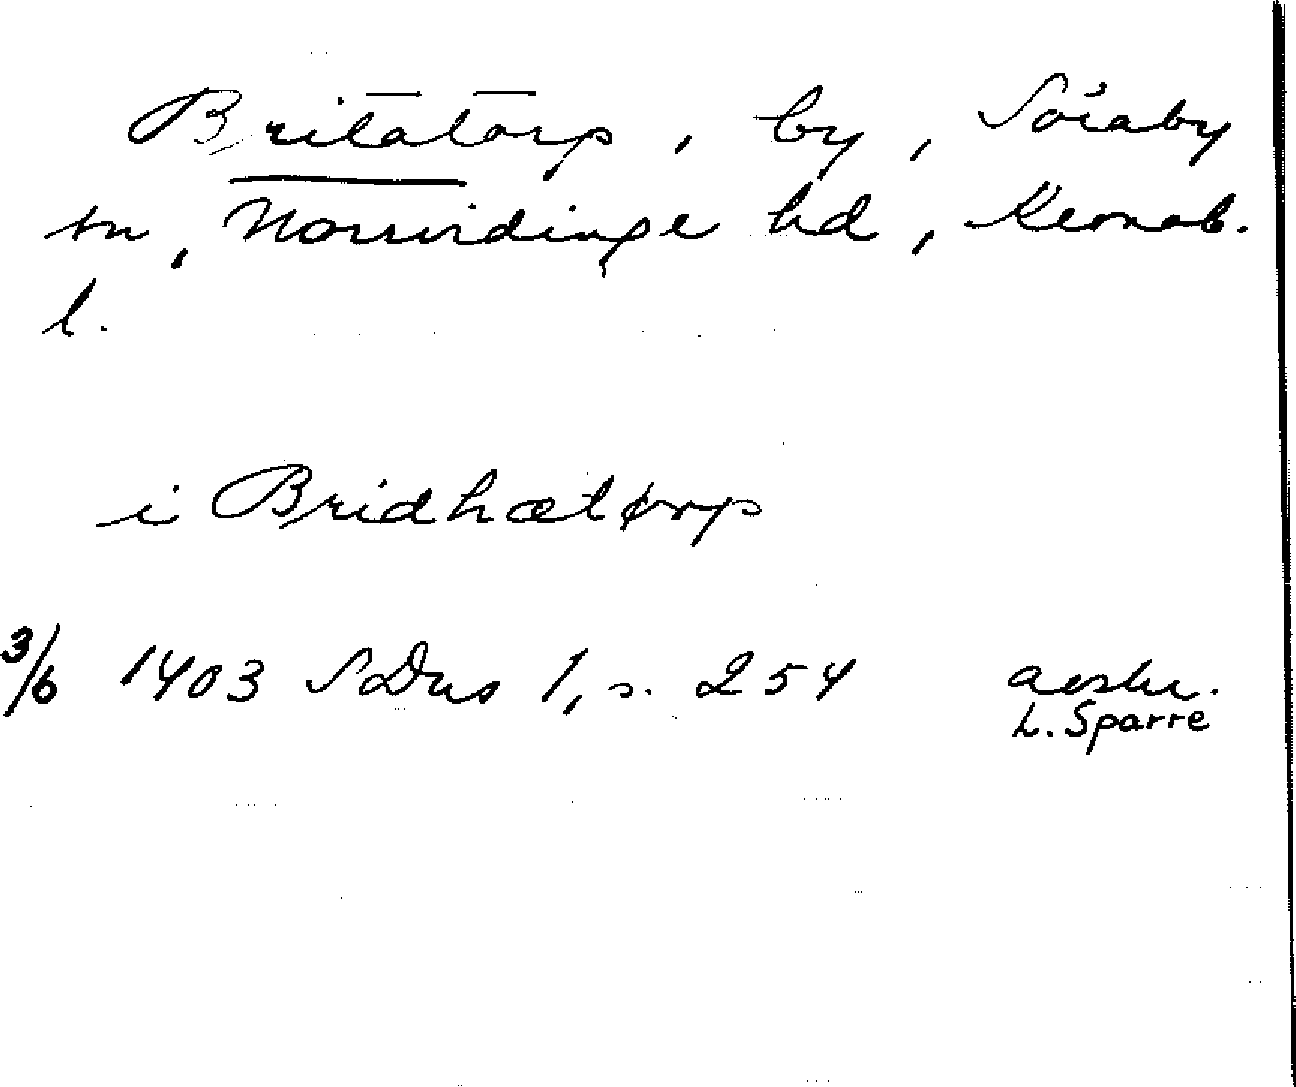 Britatorp, by, Söraby
sn, Norrvidinge hd, Kronob.
l.
i Bridhætørp
3/6 1403 SDns 1, s. 254 avskr.
L. Sparre